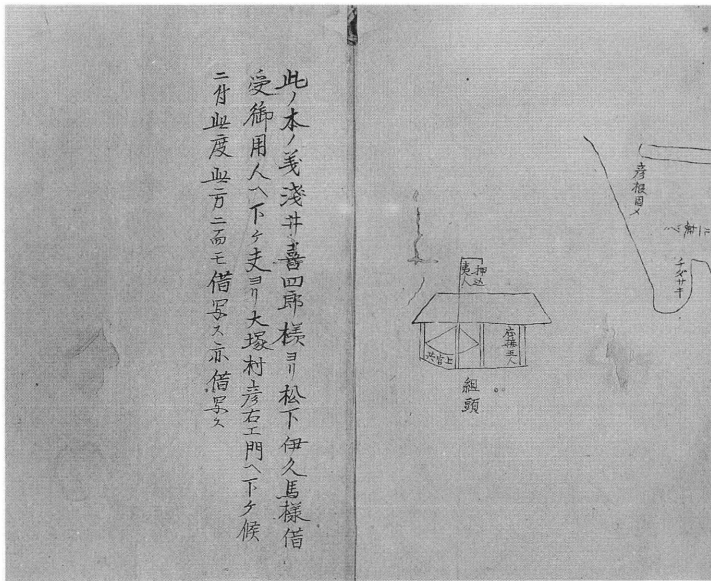 彦根固メ
チダサキ
押込
夷人
応接五人
上官共
組頭
此ノ本ノ義淺井喜四郎様ヨリ松下伊久馬様借
受御用人ヘ下ケ夫ヨリ大塚村彦右エ門ヘ下ケ候
ニ付此度此方ニ而モ借写ス亦借写ス